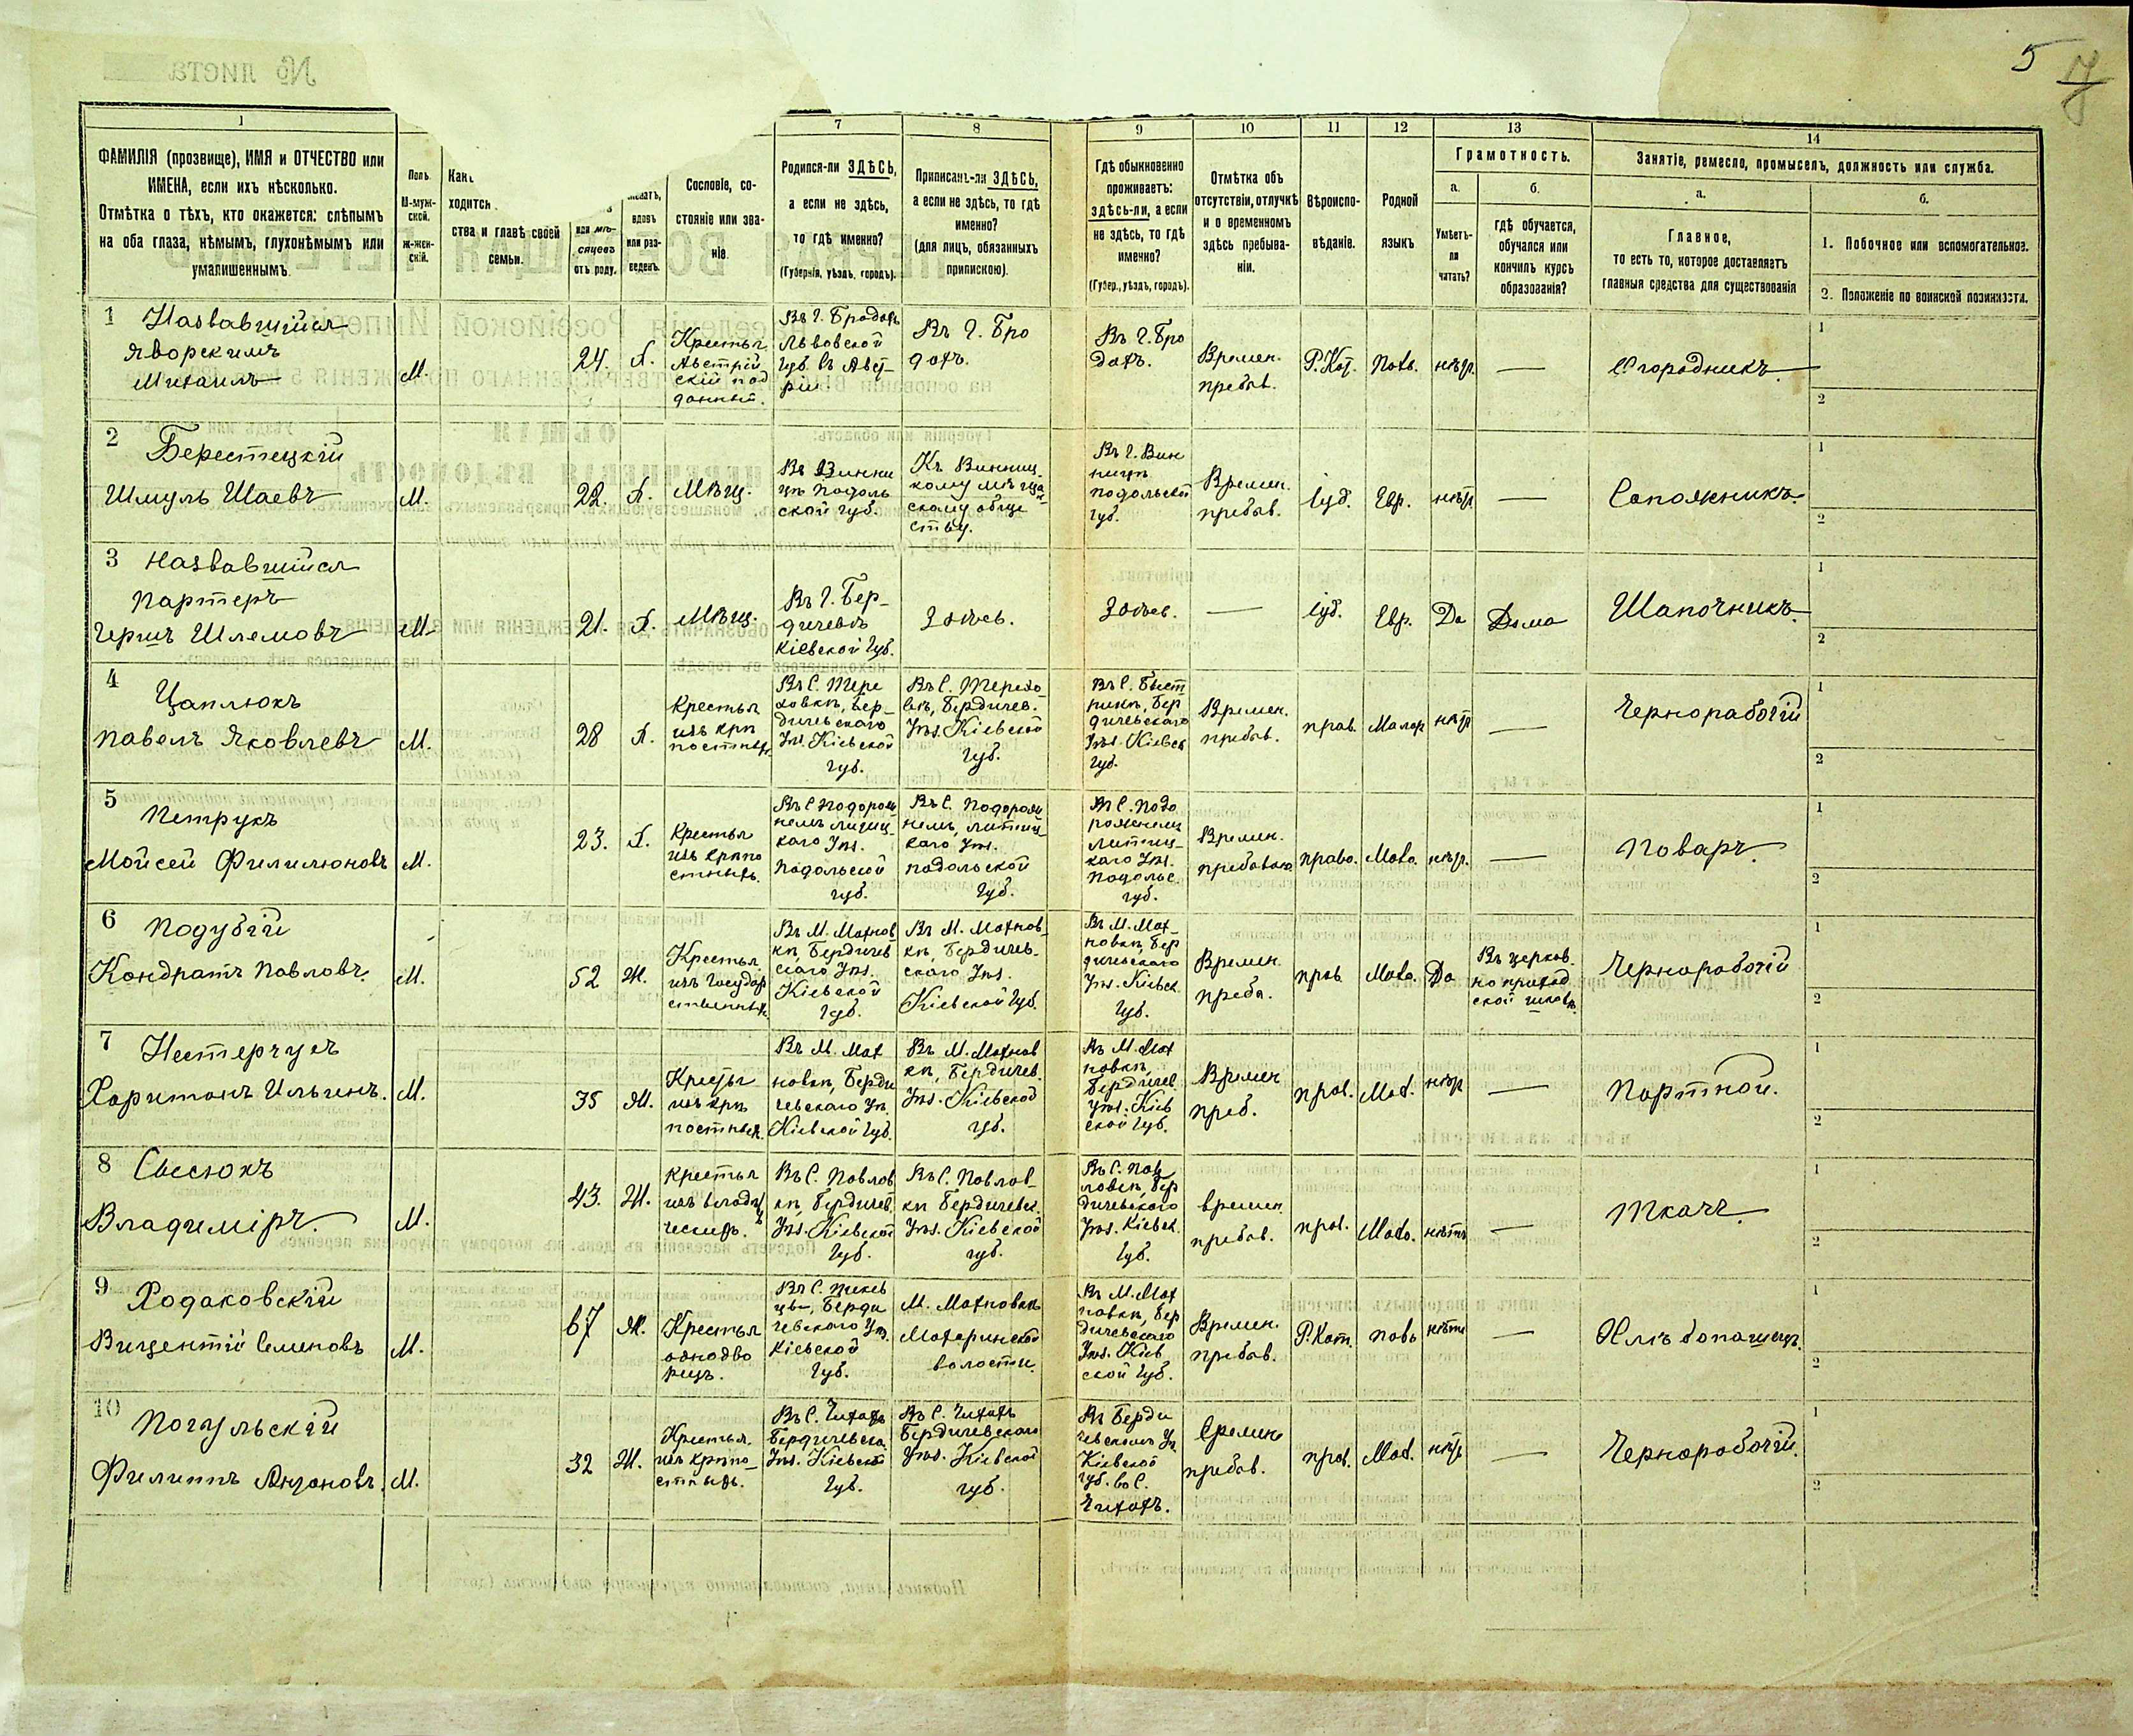 5
17
№ листа
1
ФАМИЛІЯ (прозвище), ИМЯ и ОТЧЕСТВО или
ИМЕНА, если ихъ нѣсколько.
Отмѣтка о тѣхъ, кто окажется: слѣпымъ
на оба глаза, нѣмымъ, глухонѣмымъ или
умалишеннымъ.
Полъ
М-муж-
ской.
Ж-жен-
скій.
ства и главѣ своей
семьи.
или мѣ-
сяцевъ
отъ роду.
вдовъ
или раз-
веденъ.
Сословіе, со-
стояніе или зва-
ніе.
7
Родился-ли ЗДѢСЬ,
а если не здѣсь,
то гдѣ именно?
(Губернія, уѣздъ, городъ).
8
Приписанъ-ли ЗДѢСЬ,
а если не здѣсь, то гдѣ
именно?
(для лицъ, обязанныхъ
припискою).
9
Гдѣ обыкновенно
проживаетъ:
здѣсь-ли, а если
не здѣсь, то гдѣ
именно?
(Губер., уѣздъ, городъ).
10
Отмѣтка объ
отсутствіи, отлучкѣ
и о временномъ
здѣсь пребыва-
ніи.
11
Вѣроиспо-
вѣданіе.
12
Родной
языкъ
13
Грамотность.
а.
Умѣетъ-
ли
читать?
б.
гдѣ обучается,
обучался или
кончилъ курсъ
образованія?
14
Занятіе, ремесло, промыселъ, должность или служба.
а.
Главное,
то есть то, которое доставляетъ
главныя средства для существованія
б.
1. Побочное или вспомогательное.
2. Положеніе по воинской повинности.
1 Назвавшійся
Яворскимъ
Михаилъ
М.
24.
Х.
Крестья
Австрій
скій под
данный.
Въ г. Бродахъ
Львовской
губ. въ Авст-
ріи
Въ г. Бро
дахъ.
Въ г. Бро
дахъ.
Времен.
пребыв.
Р.Кат.
Поль.
нѣт.
—
Огородникъ.
1
2
2 Берестецкій
Шмуль Шаевъ
М.
22.
Х.
Мѣщ.
Въ Винни
цѣ Подоль
ской губ.
Къ Винниц-
кому мѣщан-
скому обще
ству.
Въ г. Вин
ницѣ
Подольской
губ.
Времен.
пребыв.
Іуд.
Евр.
нѣт
—
Сапожникъ
1
2
3 Назвавшійся
Партеръ
Гершъ Шлемовъ
М.
21.
Х.
Мѣщ.
Въ г. Бер-
дичевѣ
Кіевской губ.
Здѣсь.
Здѣсь.
—
Іуд.
Евр.
Да
Дома
Шапочникъ.
1
2
4 Цаплюкъ
Павелъ Яковлевъ
М.
28
Х.
Крестья
изъ крѣ
постныхъ
Въ с. Тере
ховкѣ, Бер-
дичевскаго
Уѣз. Кіевской
губ.
Въ с. Терехо-
вкѣ, Бердичев.
Уѣз. Кіевской
губ.
Въ с. Быст
рикѣ, Бер
дичевскаго
Уѣз. Кіевск
губ.
Времен.
пребыв.
прав.
Малор
нѣт
—
Чернорабочій
1
2
5 Петрукъ
Мойсей Филимоновъ
М.
23.
Х.
Крестья
изъ крѣпо
стныхъ.
Подольской
губ.
каго Уѣз.
Подольской
губ.
каго Уѣз.
Подольс.
губ.
Времен.
право.
Мало.
нѣт.
—
Поваръ.
1
2
6 Подубій
Кондратъ Павловъ.
М.
52
Ж.
Крестья
изъ государ
ственныхъ
Въ М. Махнов
кѣ, Бердичев
скаго Уѣз.
Кіевской
губ.
Въ М. Махнов-
кѣ, Бердичев-
скаго Уѣз.
Кіевской губ.
Въ М. Мах-
новкѣ, Бер
дичевскаго
Уѣз. Кіевск.
губ.
Времен.
преб.
прав.
Мало.
Да
Въ церков-
но приход
ской школѣ.
Чернорабочій
1
2
7 Нестерчукъ
Харитонъ Ильинъ.
М.
35
Ж.
Крестья
изъ крѣ
постныхъ.
Въ М. Мах
новкѣ, Берди
чевскаго Уѣ.
Кіевской губ.
Въ М. Махнов
кѣ, Бердичев.
Уѣз. Кіевской
губ.
Въ М. Мах
новкѣ,
Бердичев.
уѣз. Кіев
ской губ.
Времен
преб.
прав.
Мал.
нѣт
—
Портной.
1
2
8 Свесюкъ
Владиміръ.
М.
43.
Ж.
Крестья
Въ с. Павлов
кѣ, Бердичев.
Уѣз. Кіевской
губ.
Въ с. Павлов-
кѣ Бердичевск.
Уѣз. Кіевской
губ.
Въ с. Пав
ловкѣ, Бер
дичевского
Уѣз. Кіевск.
губ.
времен.
пребыв.
прав.
Мало.
нѣтъ
—
Ткачъ.
1
2
9 Ходаковскій
Вицентій Семеновъ
М.
67
Ж.
Крестья
однодво
рецъ.
Берди
чевскаго Уѣ.
Кіевской
губ.
М. Махновкѣ
волости.
Въ М. Мах
новкѣ, Бер
дичевскаго
Уѣз. Кіев
ской губ.
Времен.
пребыв.
Р.Кат.
поль
нѣтъ
—
Хлѣбопашецъ.
1
2
10 Погульскій
Филиппъ Антоновъ.
М.
32
Ж.
Крестья.
изъ крѣпо-
стныхъ.
Въ с. Чехахъ
Бердичевска.
Уѣз. Кіевской
губ.
Въ с. Чехахъ
Бердичевскаго
Уѣз. Кіевской
губ.
Въ Берди
чевскомъ Уѣ
Кіевской
губ. въ с.
Чехахъ.
Времен
пребыв.
прав.
Мал.
нѣт
—
Чернорабочій.
1
2